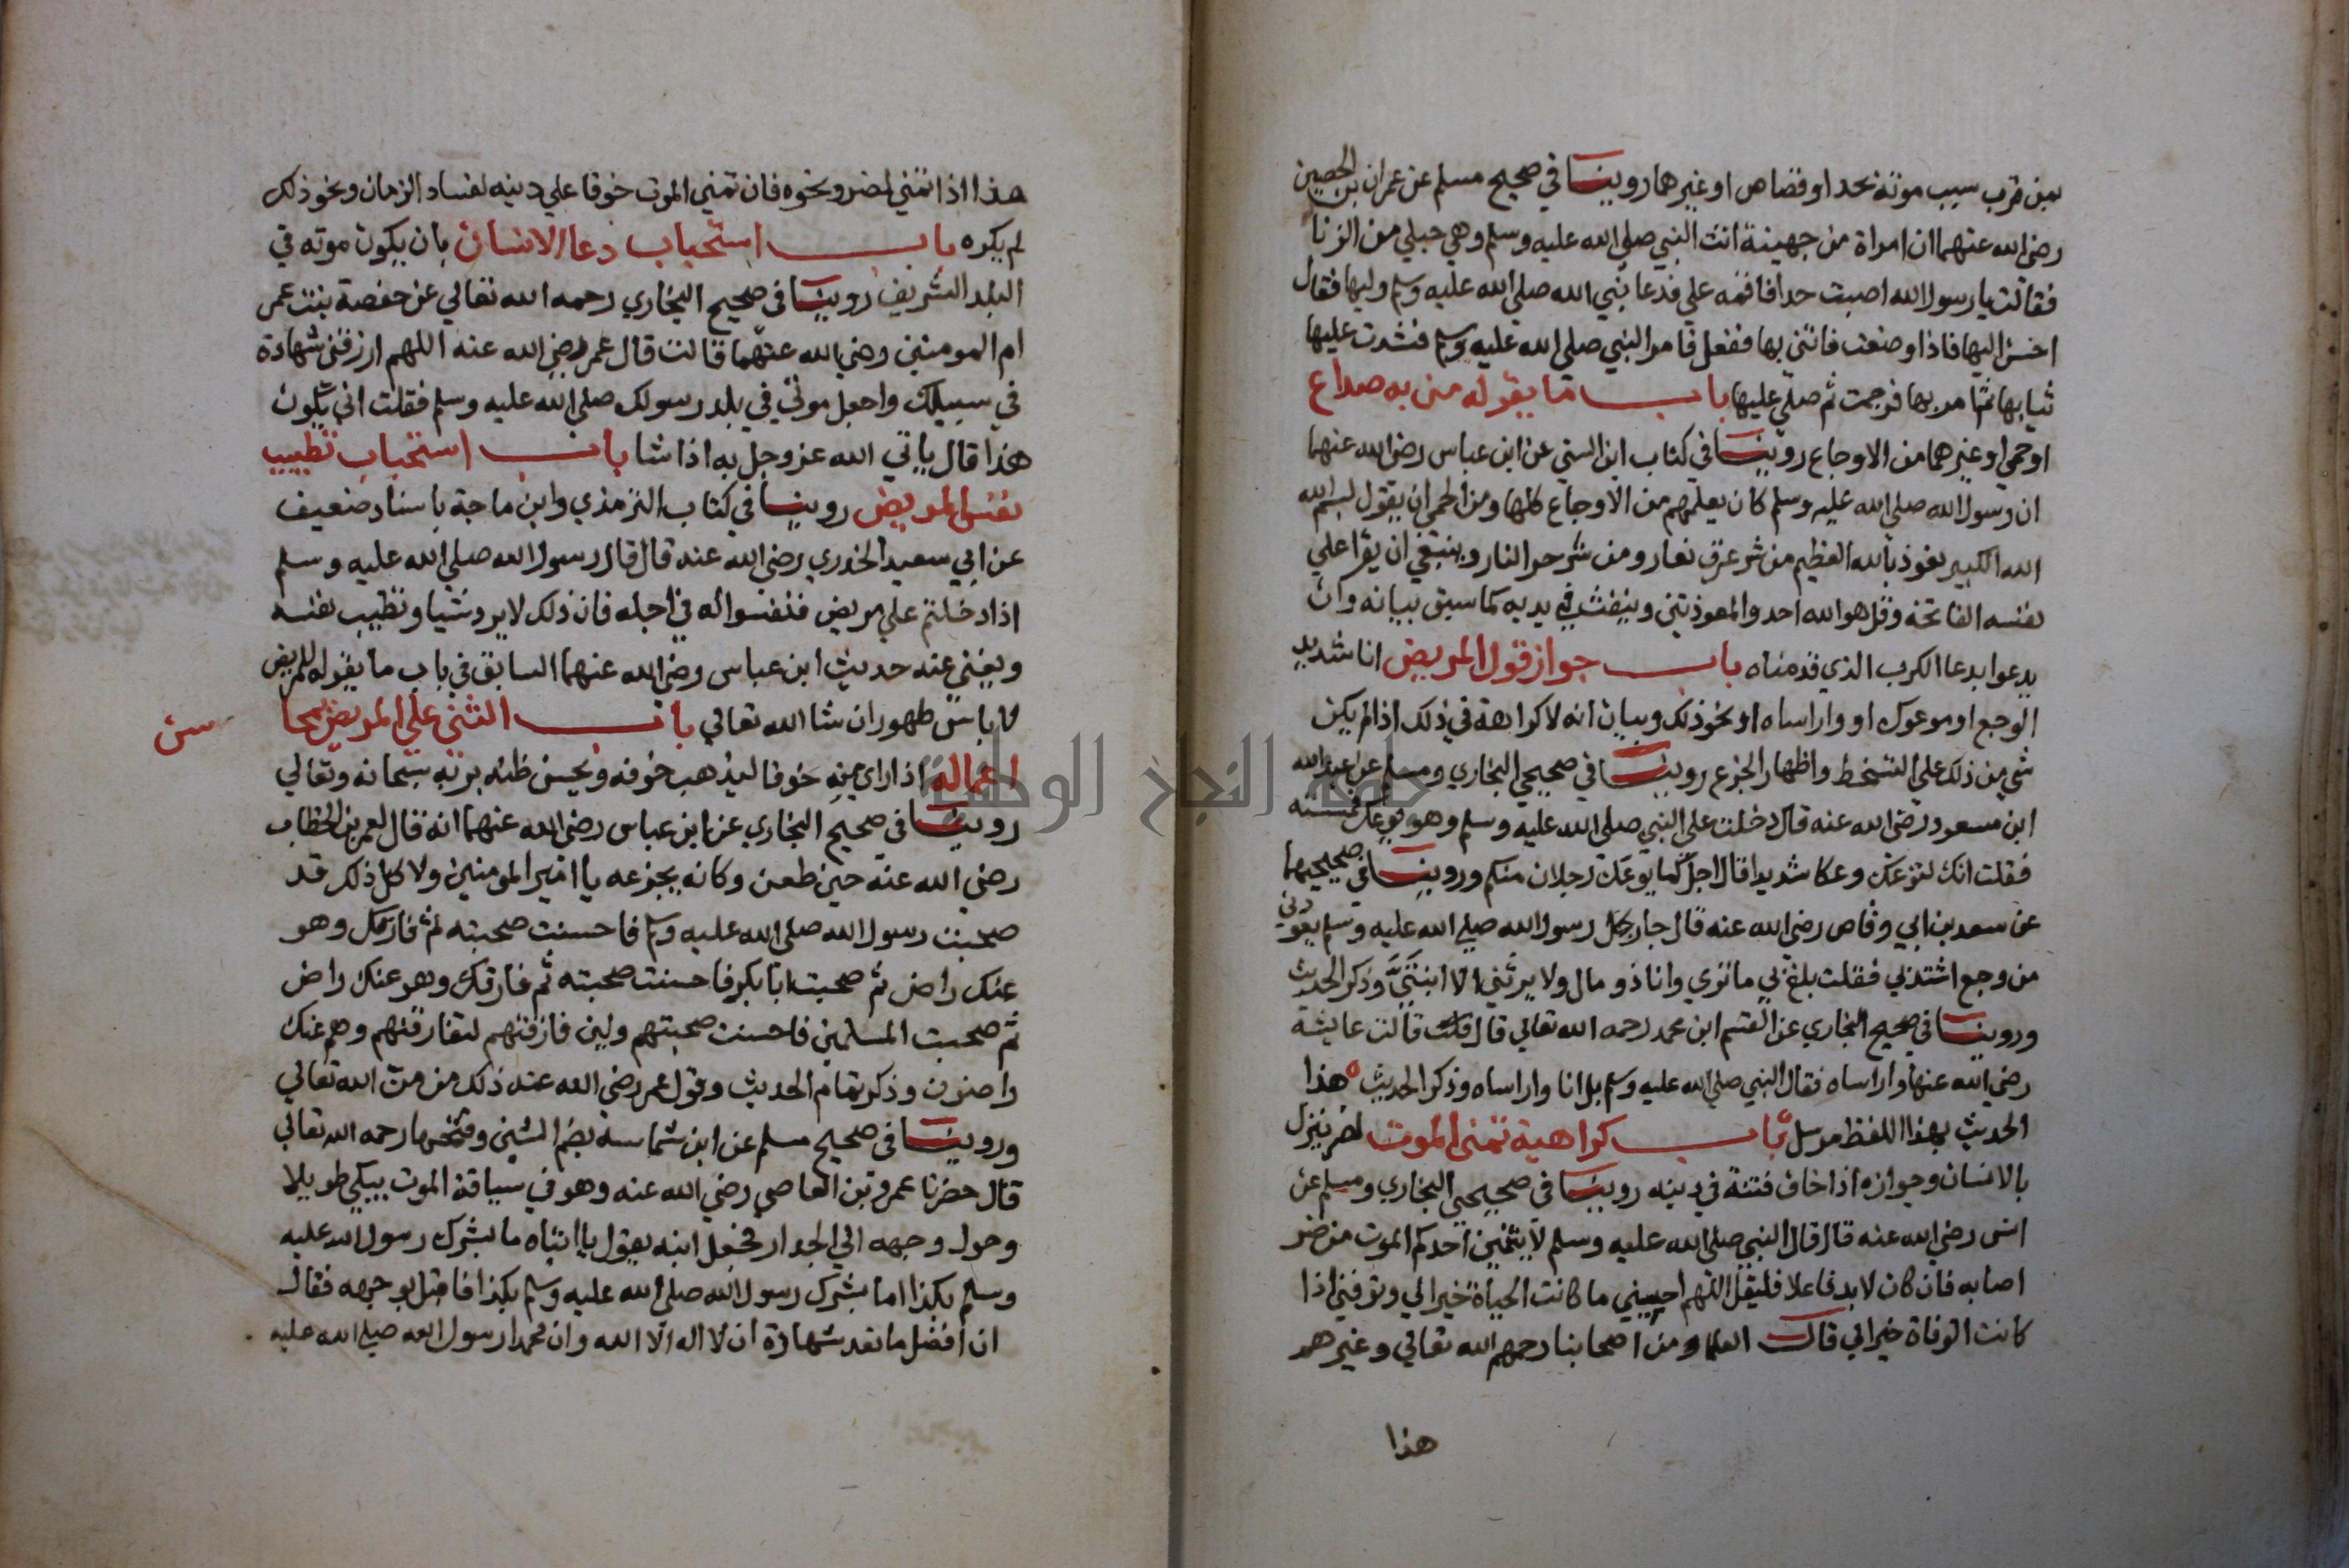 بمن قرب سبب موته بحد او قصاص او غيرهما روينا في صحيح مسلم عن عمران بن الحصين
رضي الله عنهما ان امراة من جهينة اتت النبي صلي الله عليه وسلم وهي حبلي من الزنا
فقالت يا رسول الله اصبت حدا فاقمه علي فدعا نبي الله صلي الله عليه وسلم وليها فقال
احسن اليها فاذا وضعت فاتني بها ففعل فامر النبي صلي الله عليه وسلم فشدت عليها
ثيابها ثم امر بها فرجمت ثم صلي عليها باب ما يقوله من به صداع
او حمي او غيرهما من الاوجاع روينا في كتاب ابن السني عن ابن عباس رضي الله عنهما
ان رسول الله صلي الله عليه وسلم كان يعلمهم من الاوجاع كلها ومن الحمي ان يقول بسم الله
الله الكبير نعوذ بالله العظيم من شر عرق نعار ومن شر حر النار وينبغي ان يقرا علي
نفسه الفاتحة وقل هو الله احد والمعوذتين وينفث في يديه كما سبق بيانه وان
يدعوا بدعا الكرب الذي قدمناه باب جواز قول المريض انا شديد
الوجع او موعوك او واراساه او نحو ذلك وبيان انه لا كراهة في ذلك اذا لم يكن
شي من ذلك علي التسخط واظهار الجزع روينا في صحيحي البخاري ومسلم عن عبد الله
ابن مسعود رضي الله عنه قال دخلت علي النبي صلي الله عليه وسلم وهو يوعك فمسسته
فقلت انك لتوعك وعكا شديدا قال اجل كما يوعك رجلان منكم وروينا في صحيحيهما
عن سعد بن ابي وقاص رضي الله عنه قال جا رجل رسول الله صلي الله عليه وسلم يعودني
من وجع اشتد بي فقلت بلغ بي ما تري وانا ذو مال ولا يرثني الا ابنتي وذكر الحديث
وروينا في صحيح البخاري عن القسم ابن محمد رحمه الله تعالي قال قالت عايشة
رضي الله عنها واراساه فقال النبي صلي الله عليه وسلم بل انا واراساه وذكر الحديث ه هذا
الحديث بهذا اللفظ مرسل باب كراهية تمني الموت لضر ينزل
بالانسان وجوازه اذا خاف فتنة في دينه روينا في صحيحي البخاري ومسلم عن
انس رضي الله عنه قال قال النبي صلي الله عليه وسلم لا يتمنين احدكم الموت من ضر
اصابه فان كان لا بد فاعلا فليقل اللهم احييني ما كانت الحياة خيرا لي وتوفني اذا
كانت الوفاة خيرا لي قال العلما ومن اصحابنا رحمهم الله تعالي وغيرهم
هذا
هذا اذا تمني لضر ونحوه فان تمني الموت خوفا علي دينه لفساد الزمان ونحو ذلك
لم يكره باب استحباب دعا الانسان بان يكون موته في
البلد الشريف روينا في صحيح البخاري رحمه الله تعالي عن حفصة بنت عمر
ام المومنين رضي الله عنهما قالت قال عمر رضي الله عنه اللهم ارزقني شهادة
في سبيلك واجعل موتي في بلد رسولك صلي الله عليه وسلم فقلت اني يكون
هذا قال ياتي الله عز وجل به اذا شا باب استحباب تطييب
نفس المريض روينا في كتاب الترمذي وابن ماجة باسناد ضعيف
عن ابي سعيد الخدري رضي الله عنه قال قال رسول الله صلي الله عليه وسلم
اذا دخلتم علي مريض فنفسوا له في اجله فان ذلك لا يرد شيا وتطيب نفسه
ويغني عنه حديث ابن عباس رضي الله عنهما السابق في باب ما يقوله للمريض
لا باس طهور ان شا الله تعالي باب الثني علي المريض بمحا
سن
اعماله اذا راي منه خوفا ليذهب خوفه ويحسن ظنه بربه سبحانه وتعالي
روينا في صحيح البخاري عن ابن عباس رضي الله عنهما انه قال لعمر بن الخطاب
رضي الله عنه حين طعن وكانه يجزعه يا امير المومنين ولا كل ذلك قد
صحبت رسول الله صلي الله عليه وسلم فاحسنت صحبته ثم فارقك وهو
عنك راض ثم صحبت ابا بكر فاحسنت صحبته ثم فارقك وهو عنك راض
ثم صحبت المسلمين فاحسنت صحبتهم ولين فارقتهم لتفارقنهم وهم عنك
راضون وذكر تمام الحديث وقول عمر رضي الله عنه ذلك من من الله تعالي
وروينا في صحيح مسلم عن ابن شماسة بضم الشين وفتحها رحمه الله تعالي
قال حضرنا عمرو بن العاصي رضي الله عنه وهو في سياقة الموت يبكي طويلا
وحول وجهه الي الجدار فجعل ابنه يقول يا ابتاه ما بشرك رسول الله عليه
وسلم بكذا اما بشرك رسول الله صلي الله عليه وسلم بكذا فاقبل بوجهه فقال
ان افضل ما نعد شهادة ان لا اله الا الله وان محمدا رسول الله صلي الله عليه
جامعة النجاح الوطنية